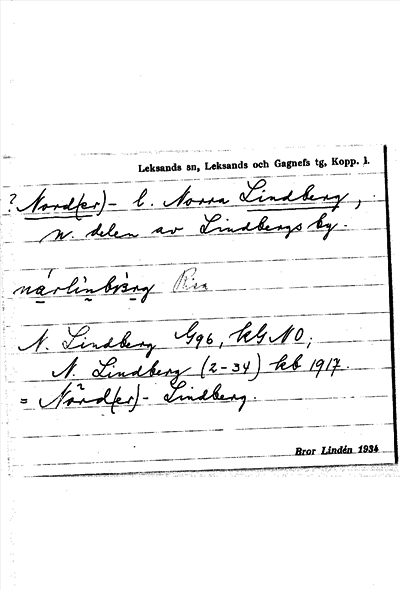 Leksands sn, Leksands och Gagnefs tg, Kopp. l.
? Nord(er)- l. Norra Lindberg,
n. delen av Lindbergs by.
N. Lindberg G96, KGNO;
N. Lindberg (2-34) kb 1917.
= Nord(er)- Lindberg.
Bror Lindén 1934